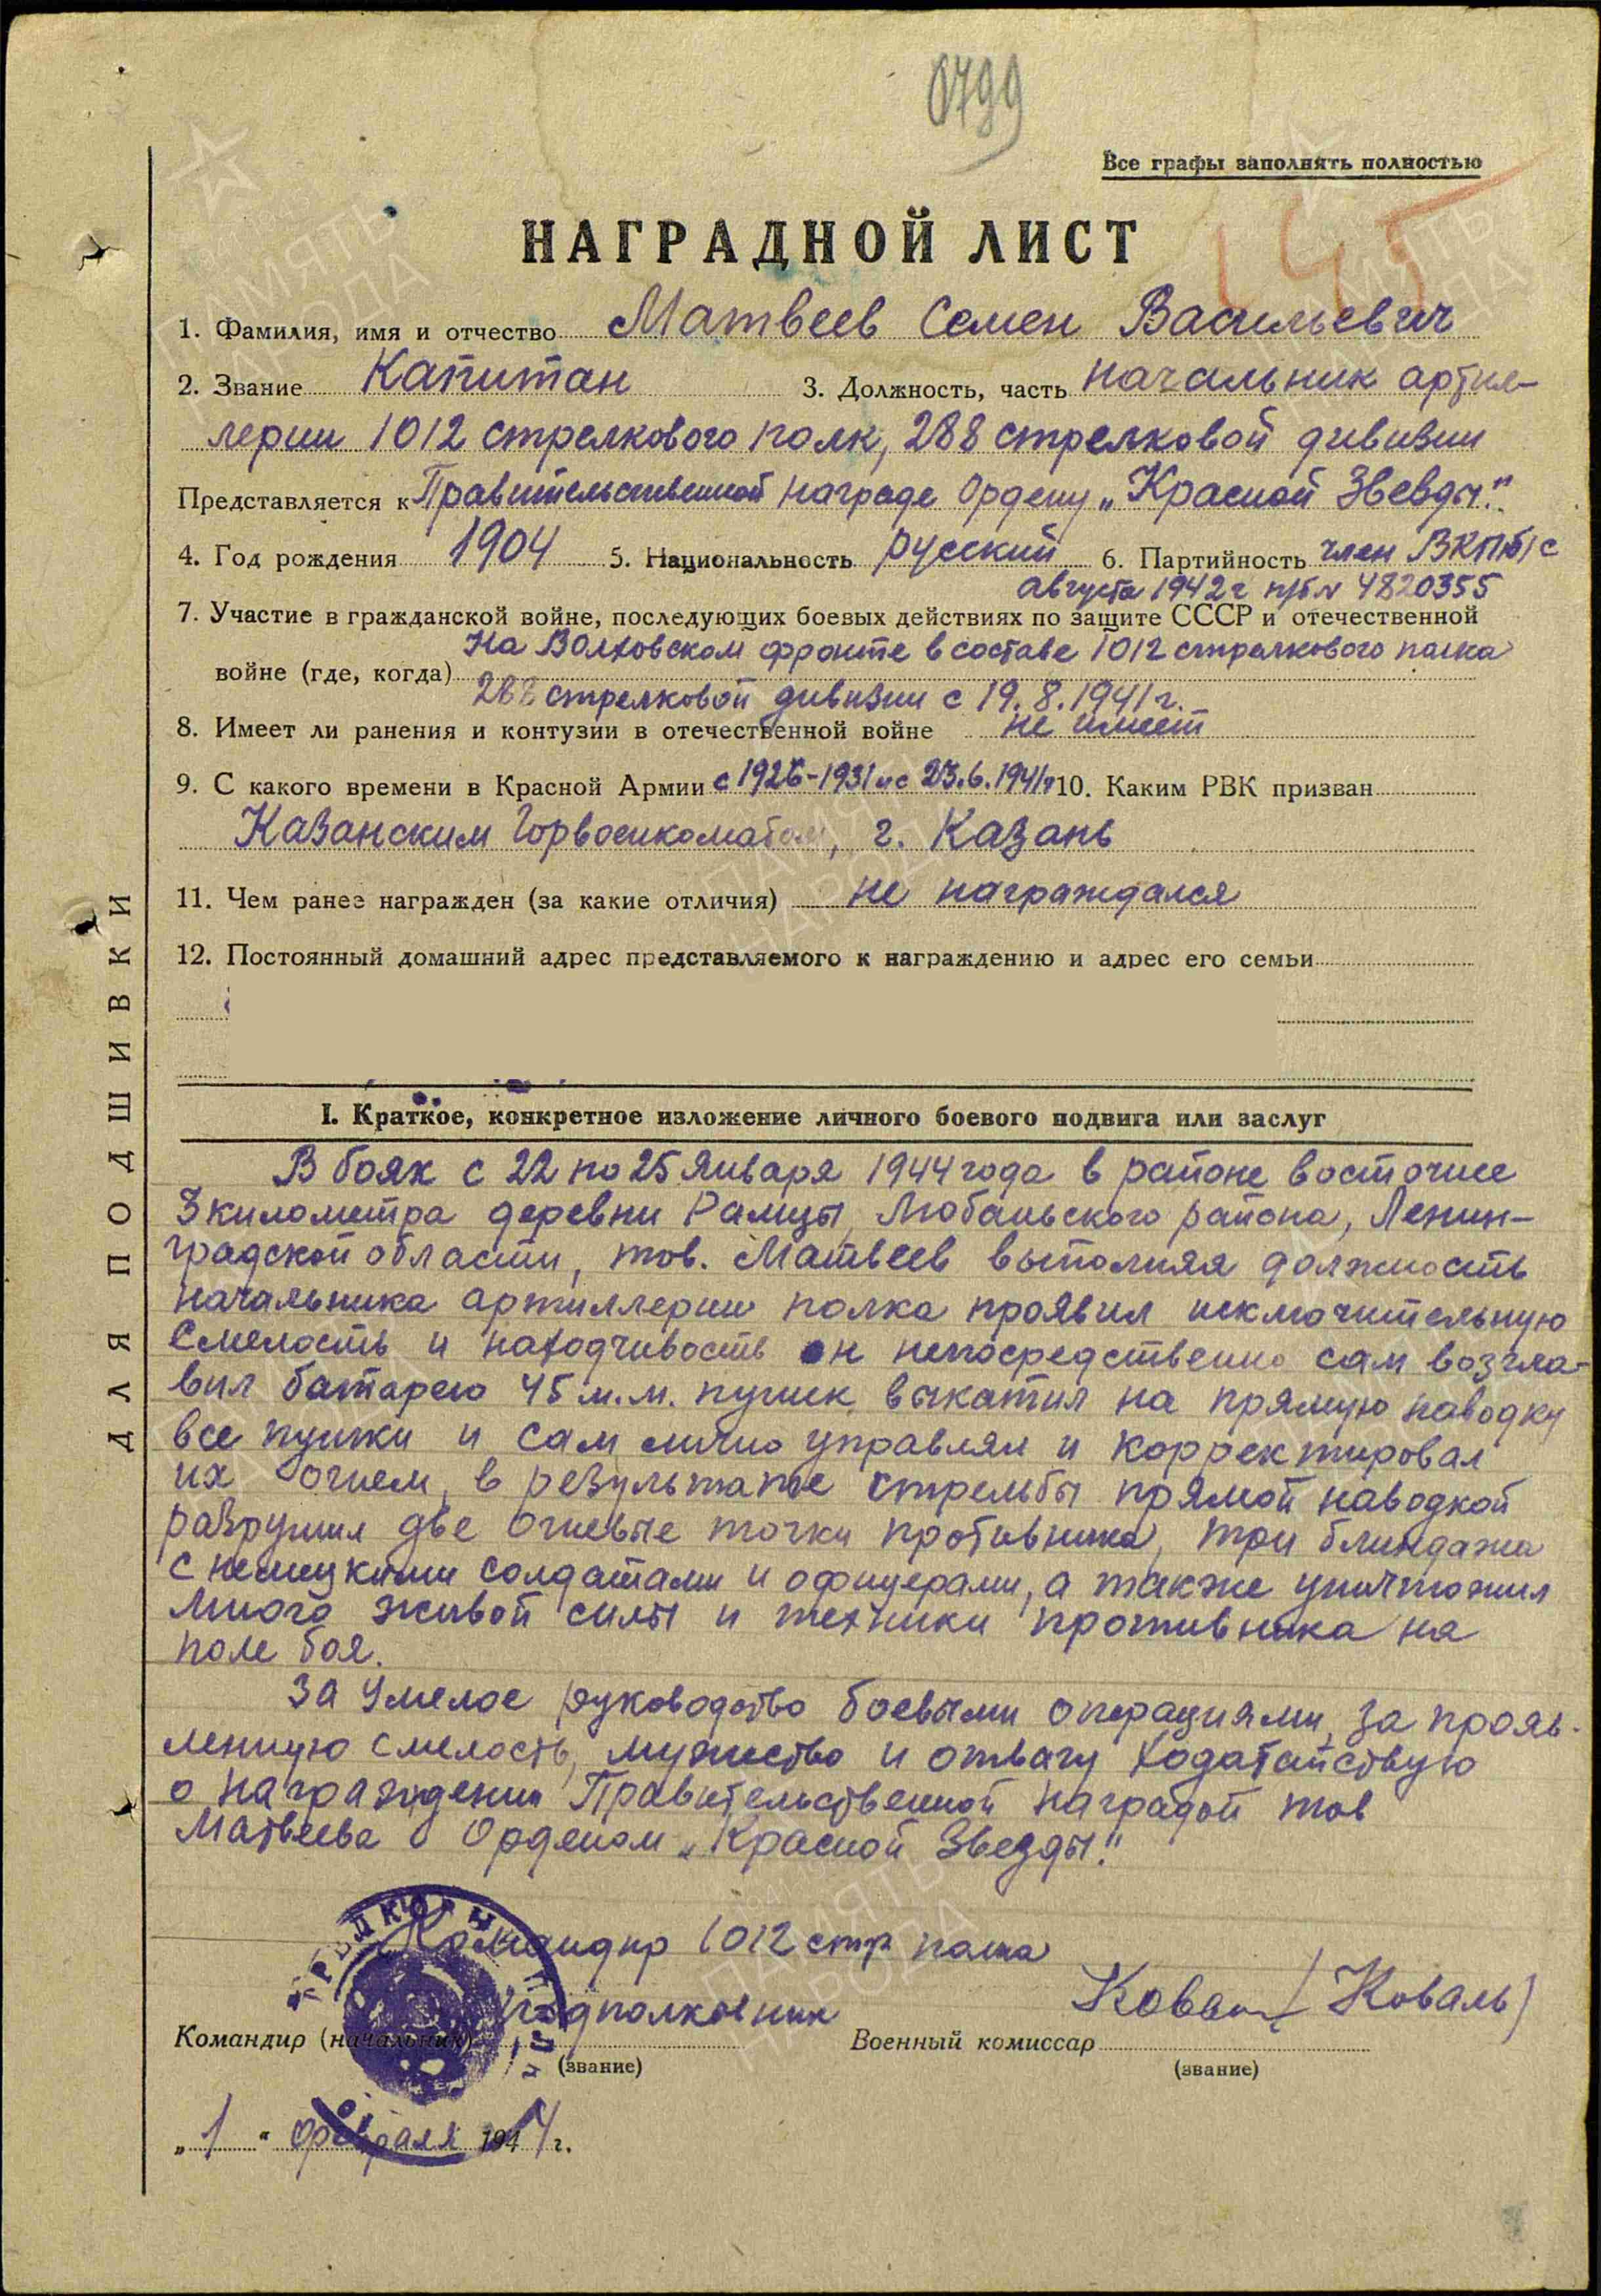 0799
Все графы заполнять полностью
НАГРАДНОЙ ЛИСТ
1. Фамилия, имя и отчество Матвеев Семен Васильевич
2. Звание Капитан 3. Должность, часть начальник артил-
лерии 1012 стрелкового полк, 288 стрелковой дивизии
Представляется к Правительственной награде Ордену „Красной Звезды."
4. Год рождения 1904 5. Национальность русский 6. Партийность член ВКП(б) с
августа 1942 г п/б № 4820355
7. Участие в гражданской войне, последующих боевых действиях по защите СССР и отечественной
На Волховском фронте в составе 1012 стрелкового полка
войне (где, когда)
288 стрелковой дивизии с 19.8.1941 г.
8. Имеет ли ранения и контузии в отечественной войне не имеет
9. С какого времени в Красной Армии с 1926-1931 и с 23.6.1941 г 10. Каким РВК призван
Казанским Горвоенкоматом, г. Казань
11. Чем ранее награжден (за какие отличия) не награждался
12. Постоянный домашний адрес представляемого к награждению и адрес его семьи
ДЛЯ ПОДШИВКИ
I. Краткое, конкретное изложение личного боевого подвига или заслуг
В боях с 22 по 25 Января 1944 года в районе восточнее
3 километра деревни Рамцы, Любаньского района, Ленин-
градской области, тов. Матвеев выполняя должность
начальника артиллерии полка проявил исключительную
смелость и находчивость он непосредственно сам возгла-
вил батарею 45 м.м. пушек, выкатил на прямую наводку
все пушки и сам лично управлял и корректировал
их огнем, в результате стрельбы прямой наводкой
разрушил две огневые точки противника, три блиндажа
с немецкими солдатами и офицерами, а также уничтожил
много живой силы и техники противника на
поле боя.
За умелое руководство боевыми операциями, за прояв-
ленную смелость, мужество и отвагу ходатайствую
о награждении Правительственной наградой тов
Матвеева Орденом „Красной Звезды."
Командир 1012 стр полка
подполковник Ковал (Коваль)
Командир (начальник) Военный комиссар
(звание) (звание)
„1" февраля 1944 г.
ПАМЯТЬ НАРОДА